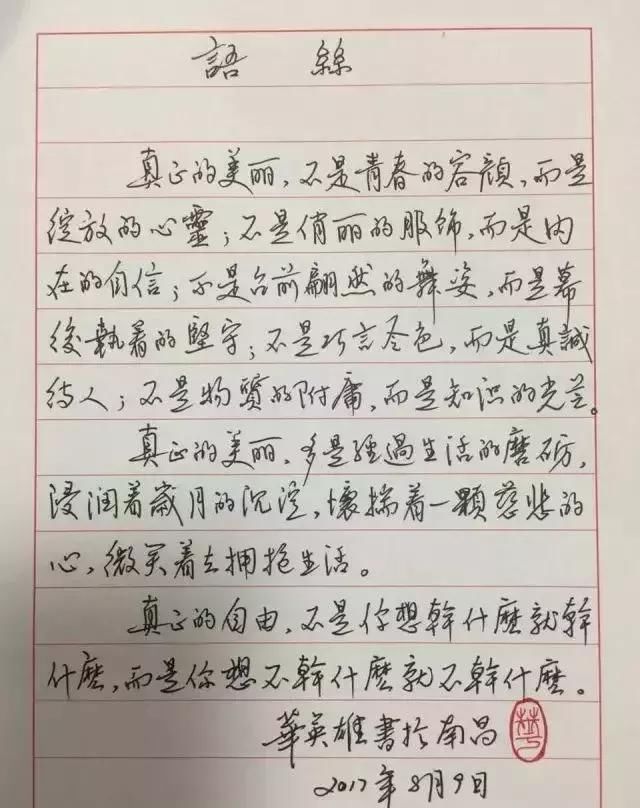 語絲
真正的美丽，不是青春的容顔，而是
绽放的心靈；不是俏丽的服饰，而是内
在的自信；不是台前翩然的舞姿，而是幕
後執着的堅守；不是巧言令色，而是真誠
待人；不是物質的附庸，而是知识的光芒。
真正的美丽，多是经過生活的磨砺，
浸润着歲月的沉淀，懷揣着一顆慈悲的
心，微笑着去拥抱生活。
真正的自由，不是你想幹什麽就幹
什麽，而是你想不幹什麽就不幹什麽。
華英雄書於南昌
2017年8月9日